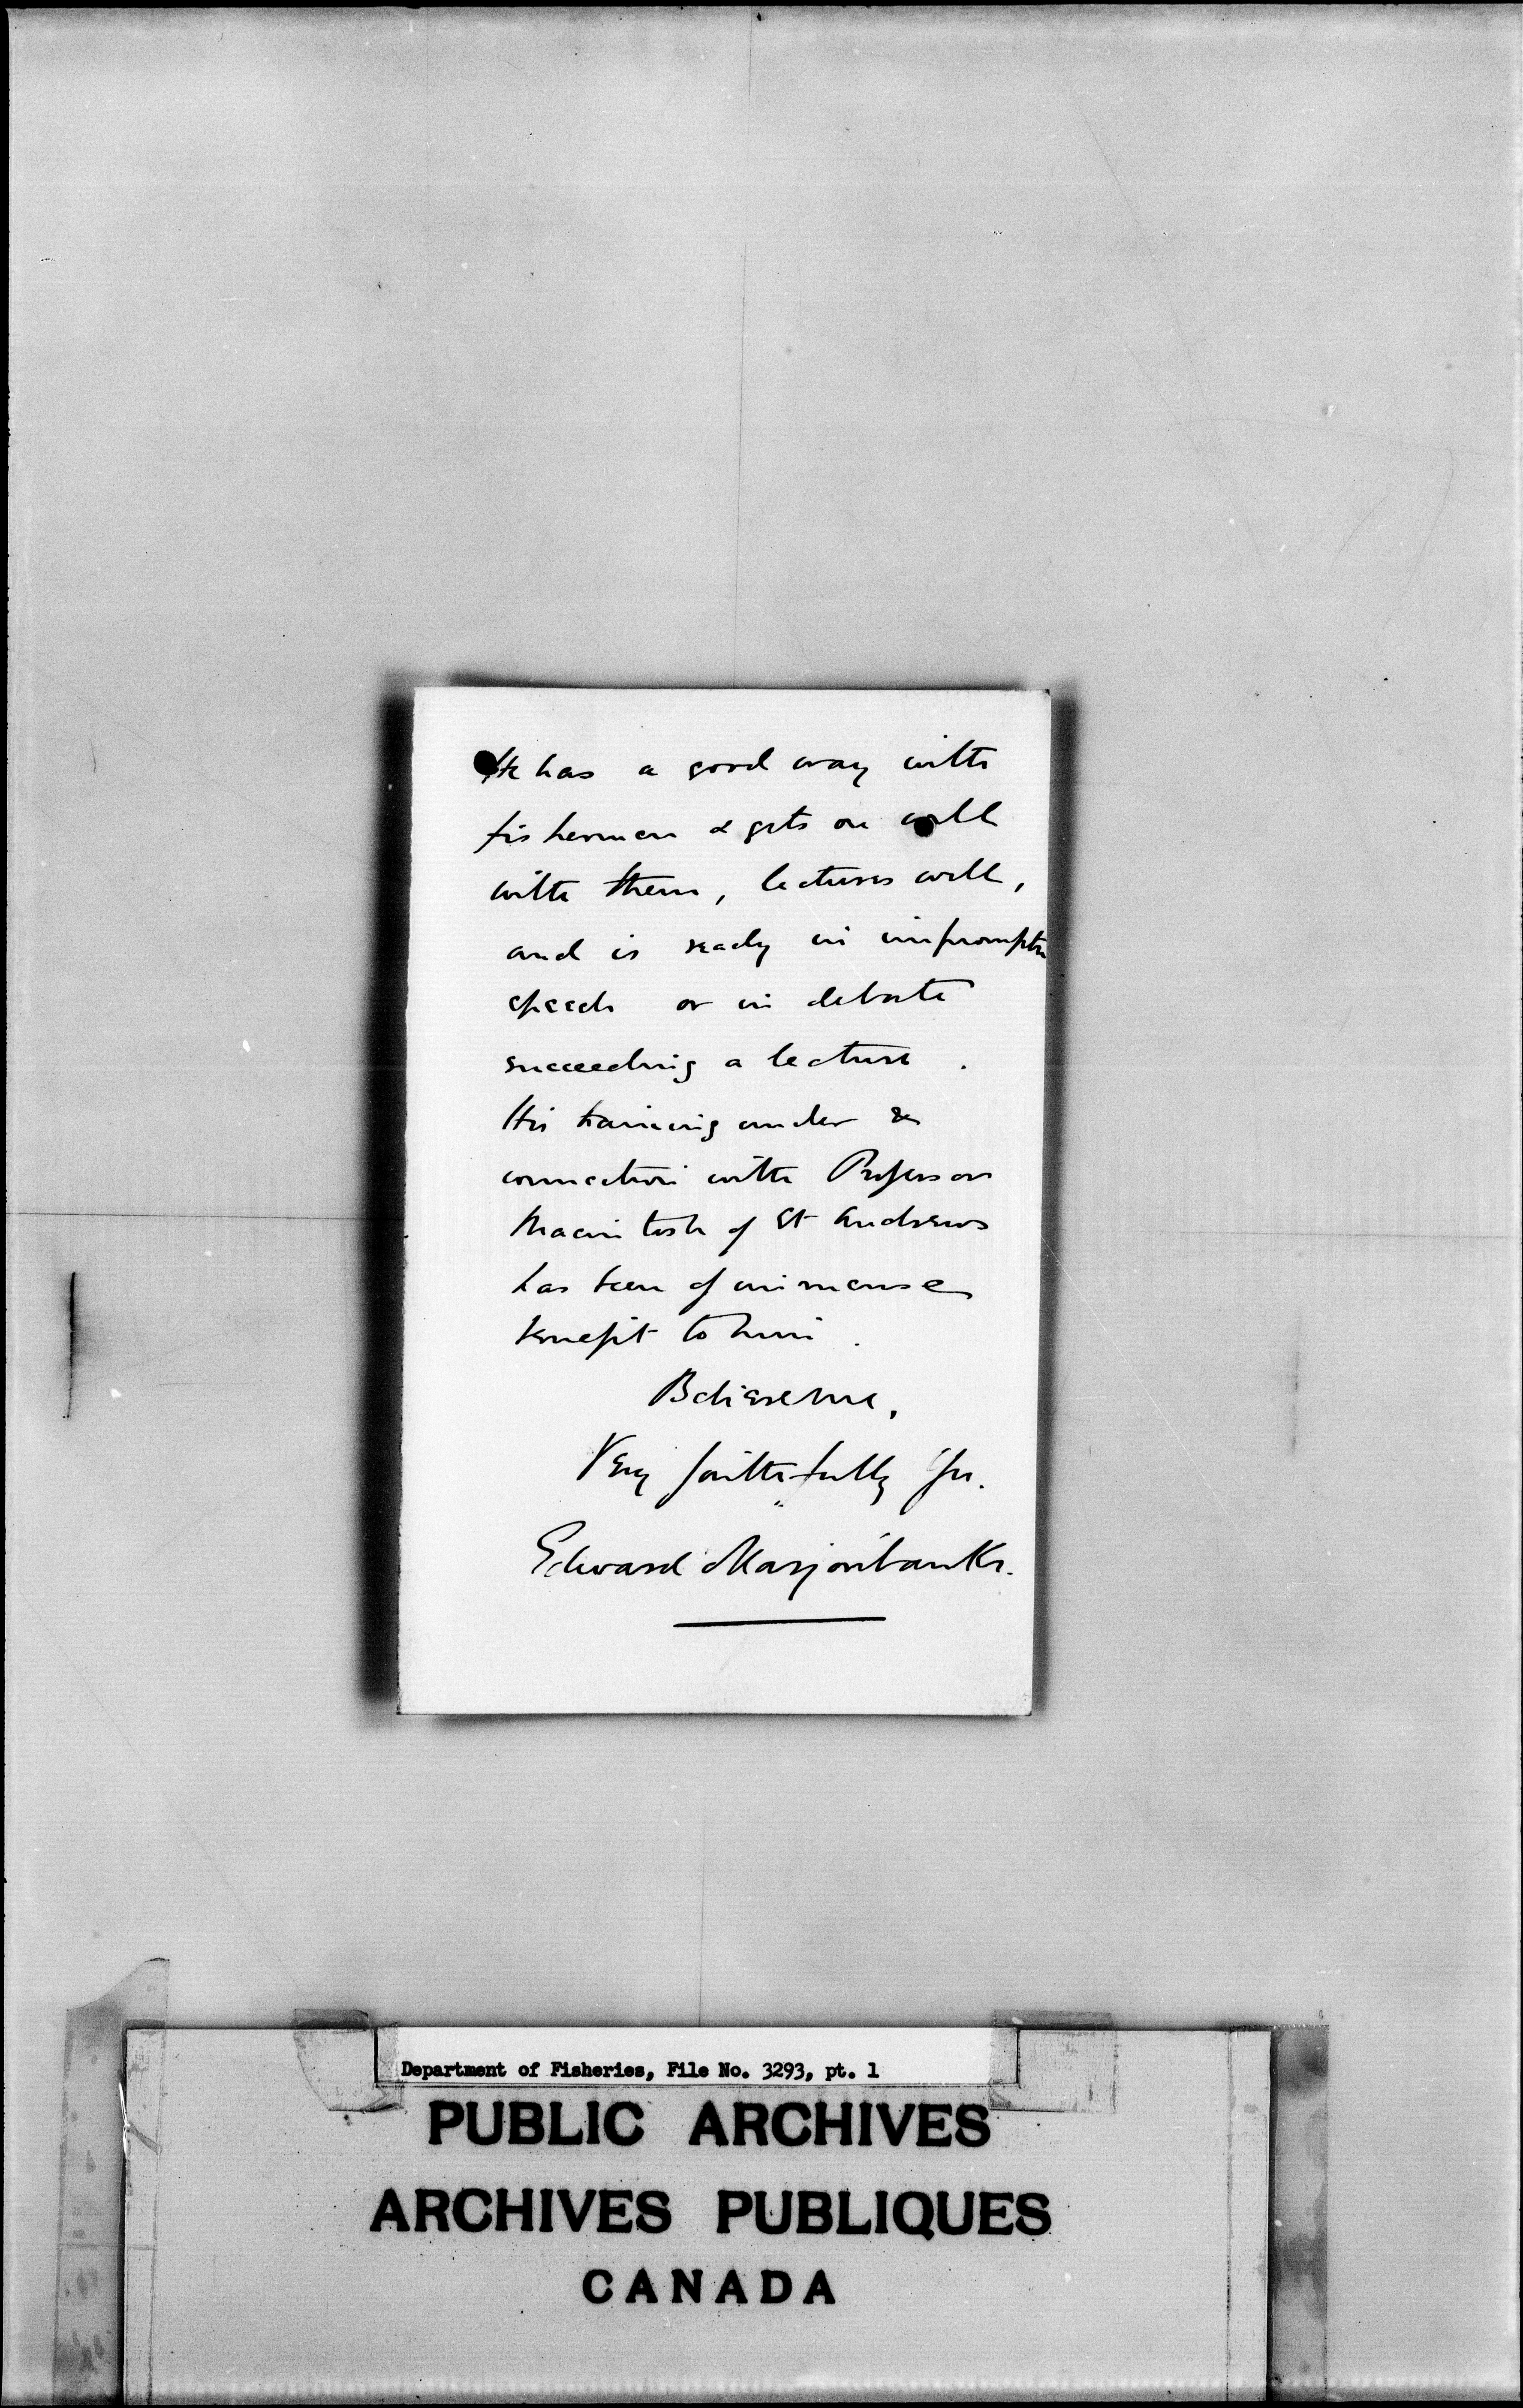 He has a good way with
fishermen & gets on well
with them, lectures well,
and is ready in impromptu
speech or in debate
succeeding a lecture.
His training under &
connection with Professor
Macintosh of St Andrews
has been of immense
benefit to him.
Believe me,
Very faithfully Yrs.
Edward Marjoribanks.
Department of Fisheries, File No. 3293, pt. 1
PUBLIC ARCHIVES
ARCHIVES PUBLIQUES
CANADA